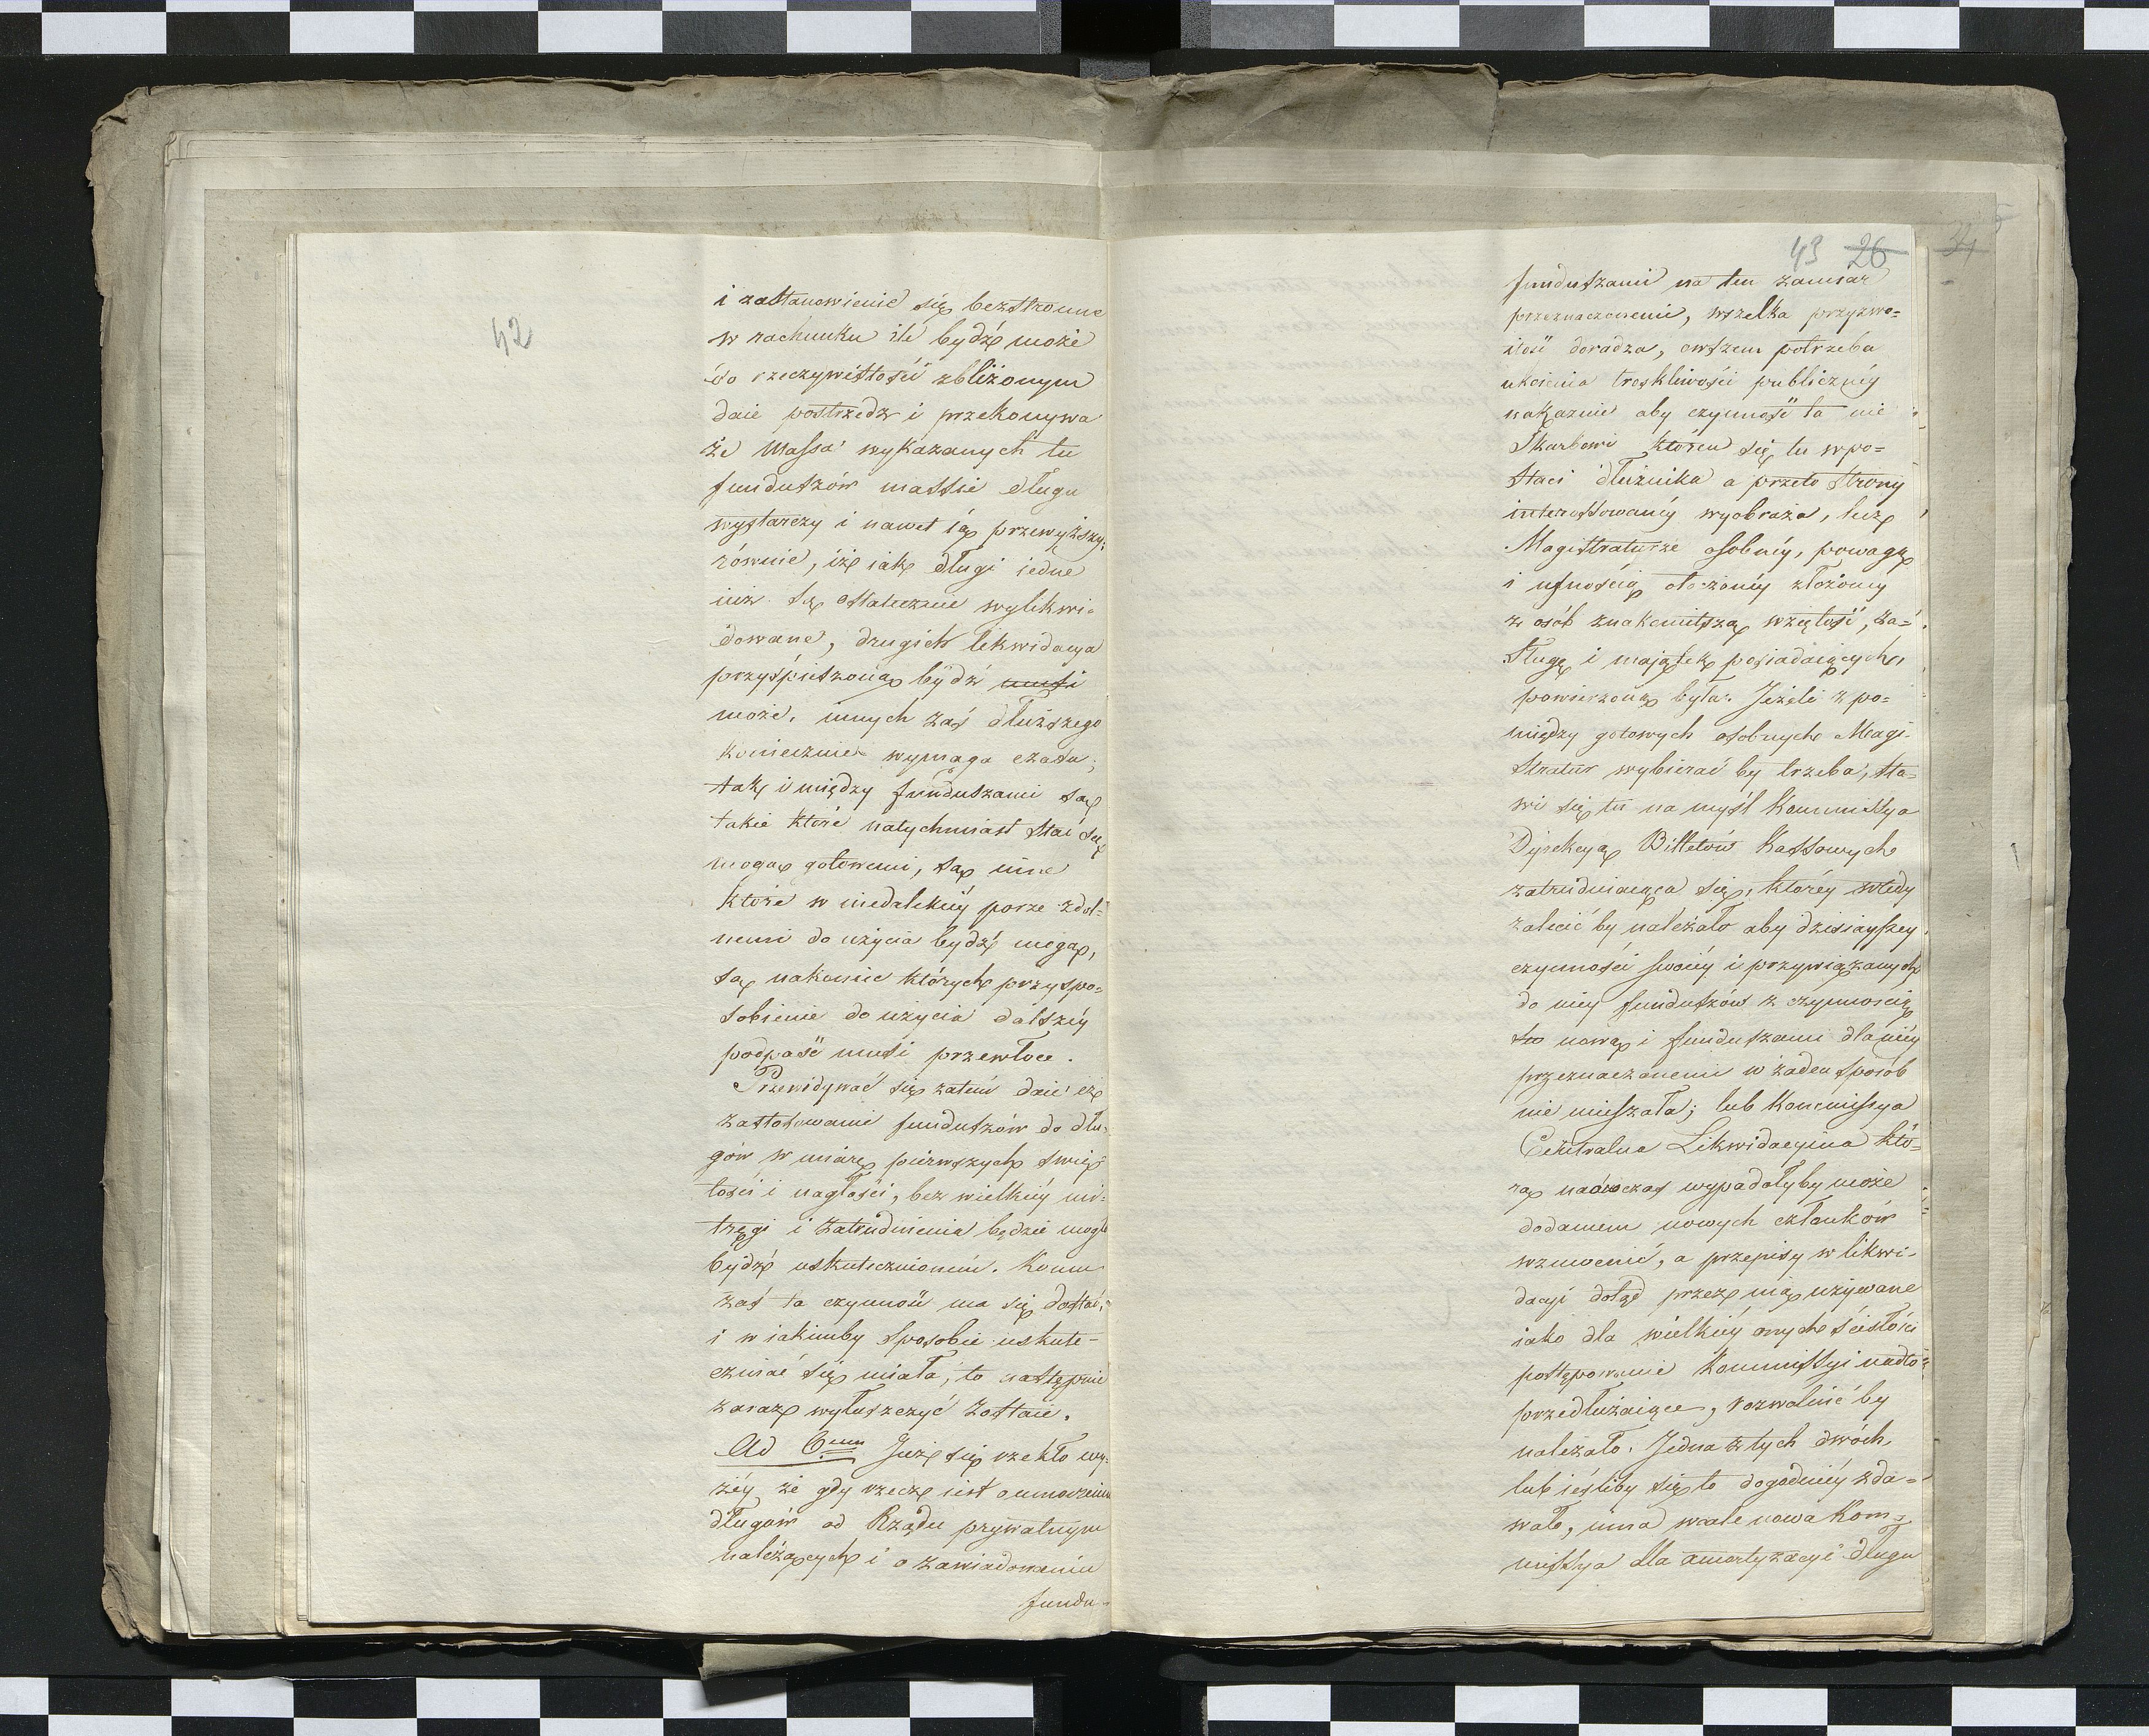 42
i zastanowienie się bezstronne
w rachunku ile bydź może
do rzeczywistości zbliżonym
daie postrzedz i przekonywa
że Massa wykazanych tu
funduszów massie długu
wystarczy i nawet ią przewyższy;
równie, iż iak długi iedne
iuż są ostatecznie wylikwi-
dowane, drugich likwidacya
przyśpieszoną bydź musi
może, innych zaś dłuższego
koniecznie wymaga czasu;
tak i między funduszami są
takie które natychmiast stać się
mogą gotowemi, są inne
które w niedalekiéy porze zdol=
nemi do użycia bydź mogą,
są nakoniec których przyspo=
sobienie do użycia dalszéy
podpaść musi przewłoce.
Przewidywać się zatem daie iż
zastosowanie funduszów do dłu-
gów w miarę pierwszych świę-
tości i nagłości, bez wielkiéy mi-
tręgi i zatrudnienia będzie mogło
bydź uskutecznioném. Komu
zaś ta czynność ma się dostać,
i w iakimby sposobie uskute-
czniać się miała, to następnie
zaraz wyłuszczyć zostaie.
Ad 6um Już się rzekło wy-
żéy że gdy rzecz iest o umorzeniu
długów od Rządu prywatnym
należących i o zawiadowaniu
fundu-
43 26
34
funduszami na ten zamiar
przeznaczonemi, wszelka przyzwo=
itość doradza, owszem potrzeba
ukoienia troskliwości publicznéy
nakazuie aby czynność ta nie
Skarbowi który się tu w po=
staci dłużnika a przeto strony
interessowanéy wyobraża, lecz
Magistraturze osobnéy, powagą
i ufnością otoczonéy złożonéy
z osób znakomitszą wziętość, za=
sługę i majątek posiadaiących,
powierzoną była. Jeżeli z po=
między gotowych osobnych Magi-
stratur wybierać by trzeba, sta-
wi się tu na myśl Kommissya
Dyrekcyą Billetów Kassowych
zatrudniaiąca się, któréy wtedy
zalecić by należało aby dzisiayszey
czynności swoiéy i przywiązanych
do niey funduszów z czynnością
tu nową i funduszami dla niéy
przeznaczonemi w żaden sposób
nie mieszała; lub Kommissya
Centralna Likwidacyina któ=
rą naówczas wypadałyby może
dodaniem nowych członków
wzmocnić, a przepisy w likwi-
dacyi dotąd przez nią używane
iako dla wielkiéy onych ścisłości
postępowanie Kommissyi nadto
przedłużaiące, rozwolnić by
należało. Jedna z tych dwóch,
lub ieśliby się to dogodniéy zda=
wało, inna wcale nowa Kom=
missya dla amortyzacyi długu